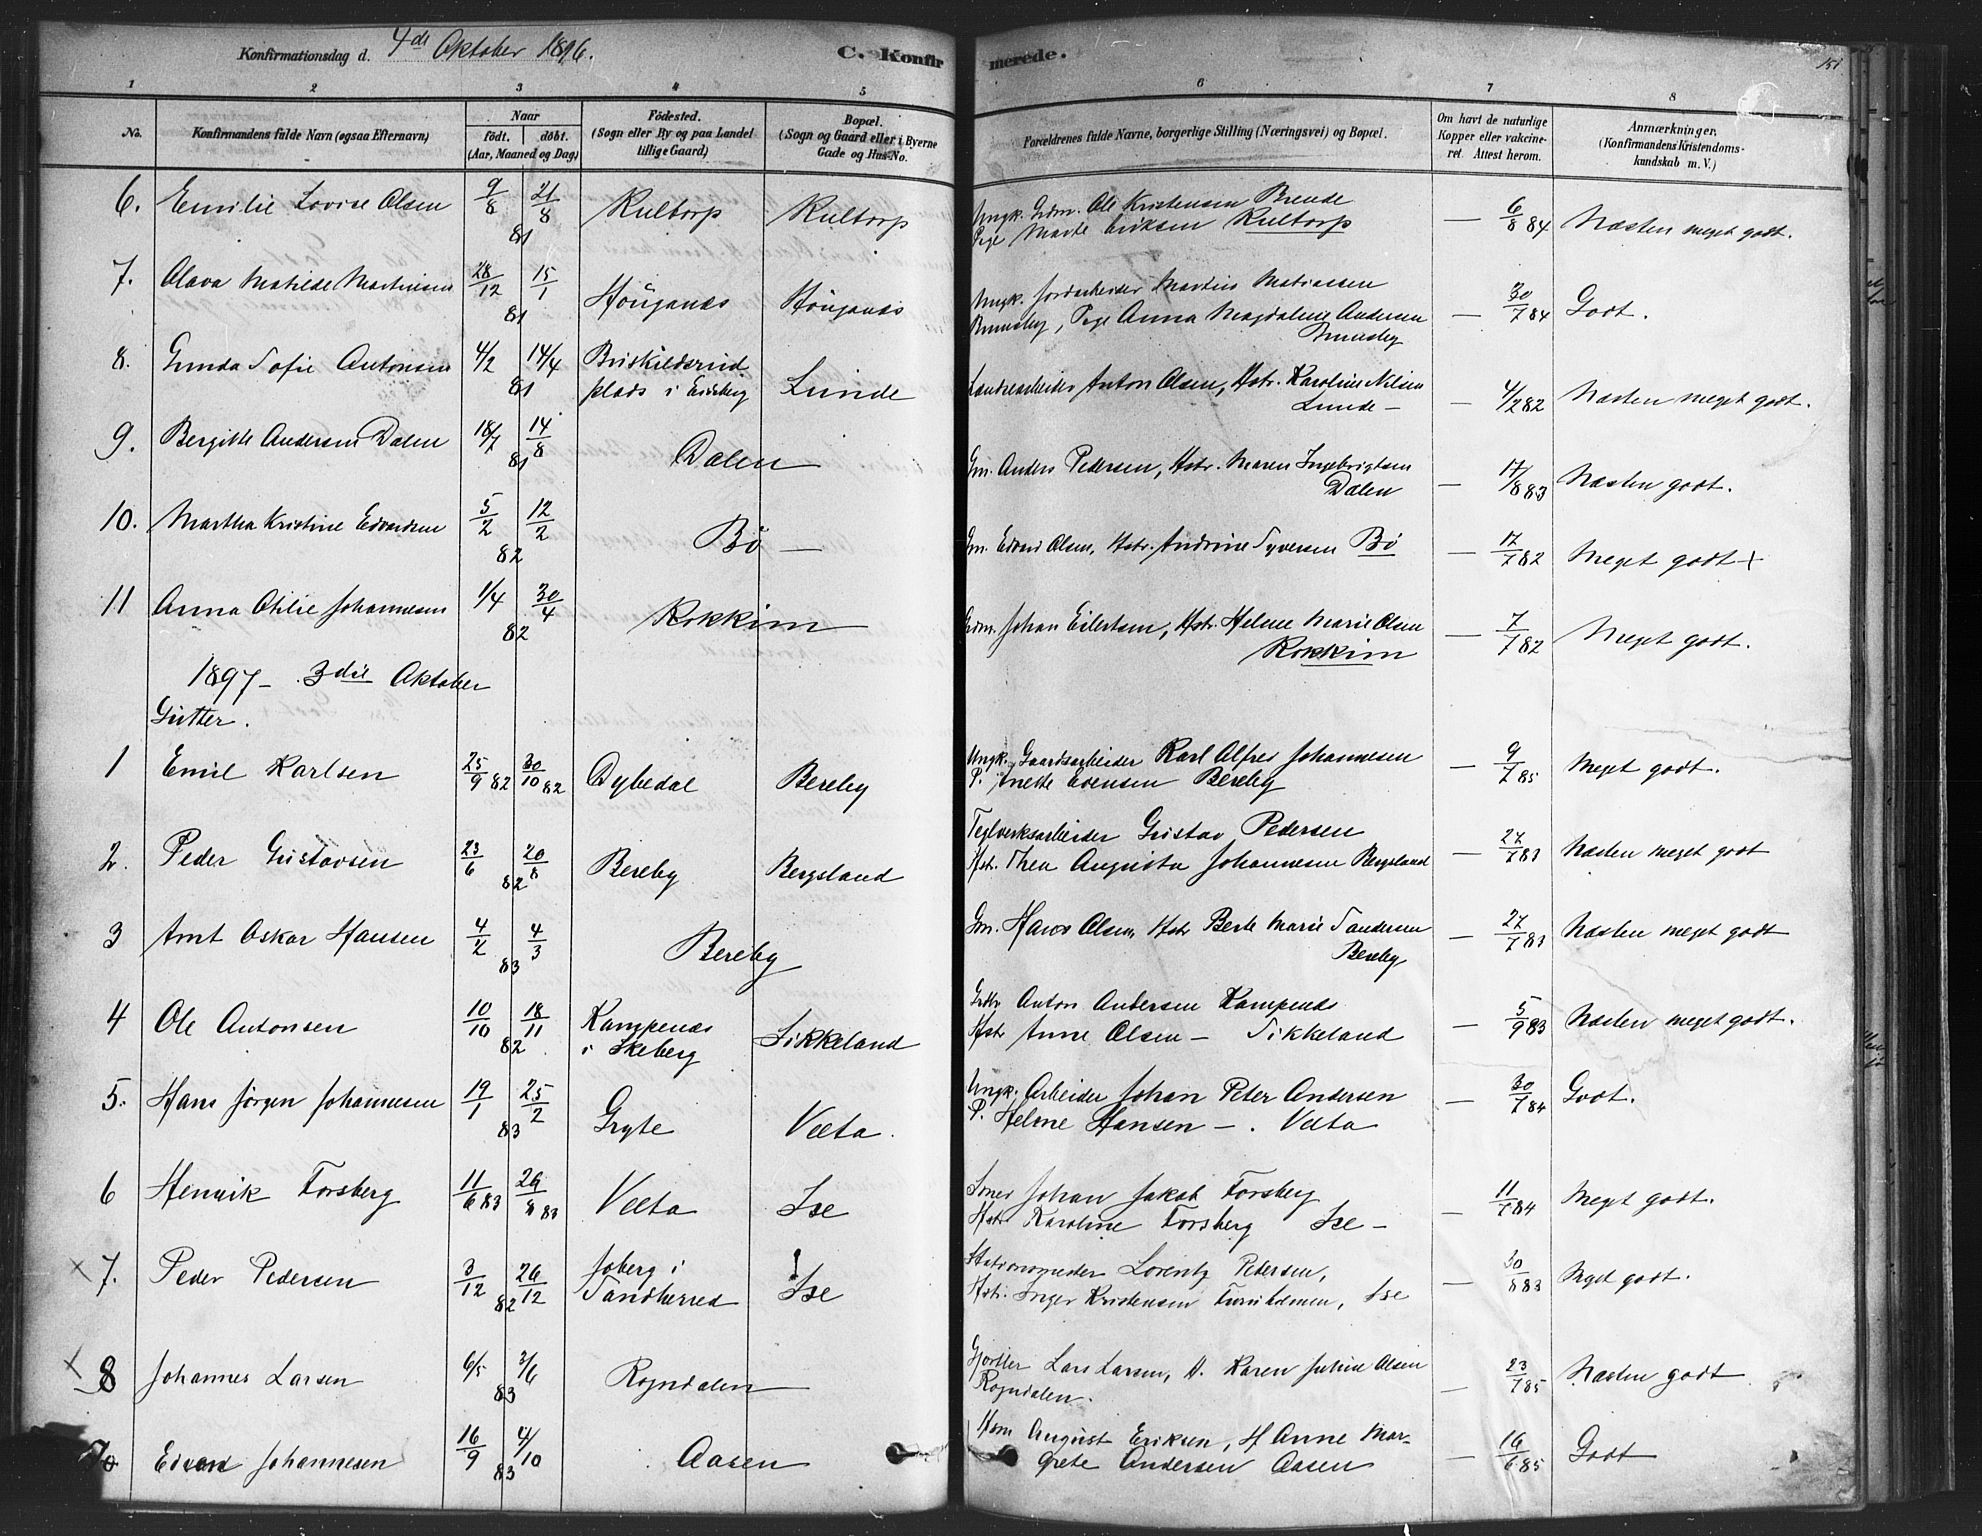 Konfirmationsdag d. 4de Oktober 1896. C. Konfirmerede. 151
1 2 3 4 5 6 7 8
No. Konfirmandens fulde Navn (ogsaa Efternavn) Naar født. døbt. (Aar, Maaned og Dag) Fødested. (Sogn eller By og paa Landet tillige Gaard) Bopæl. (Sogn og Gaard eller i Byerne Gade og Hus-No. Forældrenes fulde Navne, borgerlige Stilling (Næringsvei) og Bopæl. Om havt de naturlige Kopper eller vakcineret. Attest herom. Anmærkninger. (Konfirmandens Kristendomskundskab m. V.)
6. Emilie Lovise Olsen 9/8 21/8 81 Kultorp Kultorp Ungk. Grdm. Ole Kristensen Brende
Pige Marte Eriksen Kultorp — 6/8 84 Næsten meget godt.
7. Olava Matilde Martinsen 28/12 15/1 81 Höuganes Höuganes Ungk. Jordarbeider Martin Matiassen
Brunsby, Pige Anna Magdalene Andersen
Brunsby — 30/7 84 Godt.
8. Gunda Sofie Antonsen 4/2 14/4 81 Briskildsrud
plads i Eidsberg Lunde Landsearbeider Anton Olsen, Hstr. Karoline Nilsen
Lunde — — 4/2 82 Næsten meget godt.
9. Bergitte Andersen Dalen 18/7 14/8 81 Dalen Gm. Anders Pedersen, Hstr. Maren Ingebrigtsen
Dalen — 17/8 83 Næsten godt.
10. Martha Kristine Edvardsen 5/2 12/2 82 Bö — Gm. Edvard Olsen, Hstr. Andrine Syversen Bö — 17/7 82 Meget godt +
11 Anna Otilie Johannesen 1/4 30/4 82 Rokkim Grdm. Johan Eilertsen, Hstr. Helene Marie Olsen
Rokkim — 7/7 82 Meget godt.
1897 - 3die Oktober
Gutter.
1 Emil Karlsen 25/9 82 30/10 82 Dybedal Bereby Ungk. Gaardsarbeider Karl Alfred Johannesen
P. Anette Evensen Bereby — 9/7 85 Meget godt.
2. Peder Gustavsen 23/6 20/8 82 Bereby Bergsland Teglverksarbeider Gustav Pedersen
Hstr. Thea Augusta Johannesen Bergsland — 27/7 83 Næsten meget godt
3 Amt Oskar Hansen 4/2 4/3 83 Bereby Gm. Hans Olsen, Hstr Berte Marie Sandersen
Bereby — 27/7 83 Næsten meget godt
4 Ole Antonsen 10/10 18/11 82 Kampenæs
i Skeberg Sikkeland Grdbr Anton Andersen Kampenæs
Hstr Anne Olsen — Sikkeland — 5/9 83 Næsten meget godt.
5. Hans Jörgen Johannesen 19/1 25/2 83 Gryte Veeta. Ungk. Arbeider Johan Peter Andersen
P. Helene Hansen — . Veeta — 30/7 84 Godt.
6 Henrik Forsberg 11/6 83 26/8 83 Veeta Ise Smed Johan Jakob Forsberg
Hstr Karoline Forsberg Ise — — 11/7 84 Meget godt.
x 7. Peder Pedersen 3/12 26/12 82 Soberg i
Sandherred Ise Stationsmester Lorentz Pedersen,
Hstr. Inger Kristensen, Ise — 30/8 83 Meget godt.
x 8 Johannes Larsen 6/5 3/6 83 Rogndalen Lars Larsen, H. Karen Juline Olsen
Rogndalen. — 23/7 85 Næsten godt
Edvard Johannesen 16/9 4/10 83 Aasen Hsm August Eriksen, H Anne Mar-
grete Andersen Aasen — 16/6 85 Godt